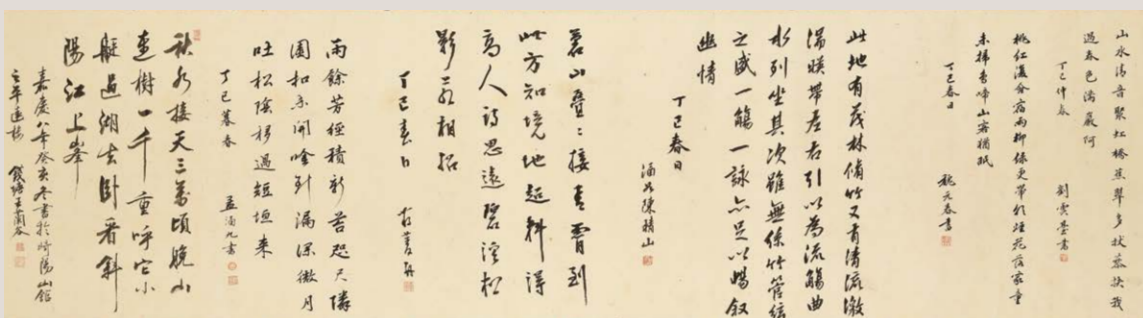 山水清音聚虹橋蕉翠多扶
過春色滿巖阿
丁巳仲春 劉雲臺書
桃紅復含宿雨柳綠更帶朝煙花落家童
未掃鳥啼山客猶眠
丁巳春日 魏元春書
此地有茂林脩竹又有清流激
湍暎帶左右引以為流觴曲
水列坐其次雖無絲竹管絃
之盛一觴一詠亦足以暢叙
幽情
丁巳春日
陳積山
山疊〻接青霄到
此方知境地超料得
高人詩思遠碧溪松
影相招
丁巳春日
雨餘芳徑積新苔咫尺隣
園和未開吟到漏深微月
吐松陰移過短垣來
丁巳暮春 孟涵九書
秋水接天三萬頃晚山
連樹一千重呼它小
艇過湖去臥看斜
陽江上峯
嘉慶八年癸亥冬書於崎陽山館
錢塘王蘭谷